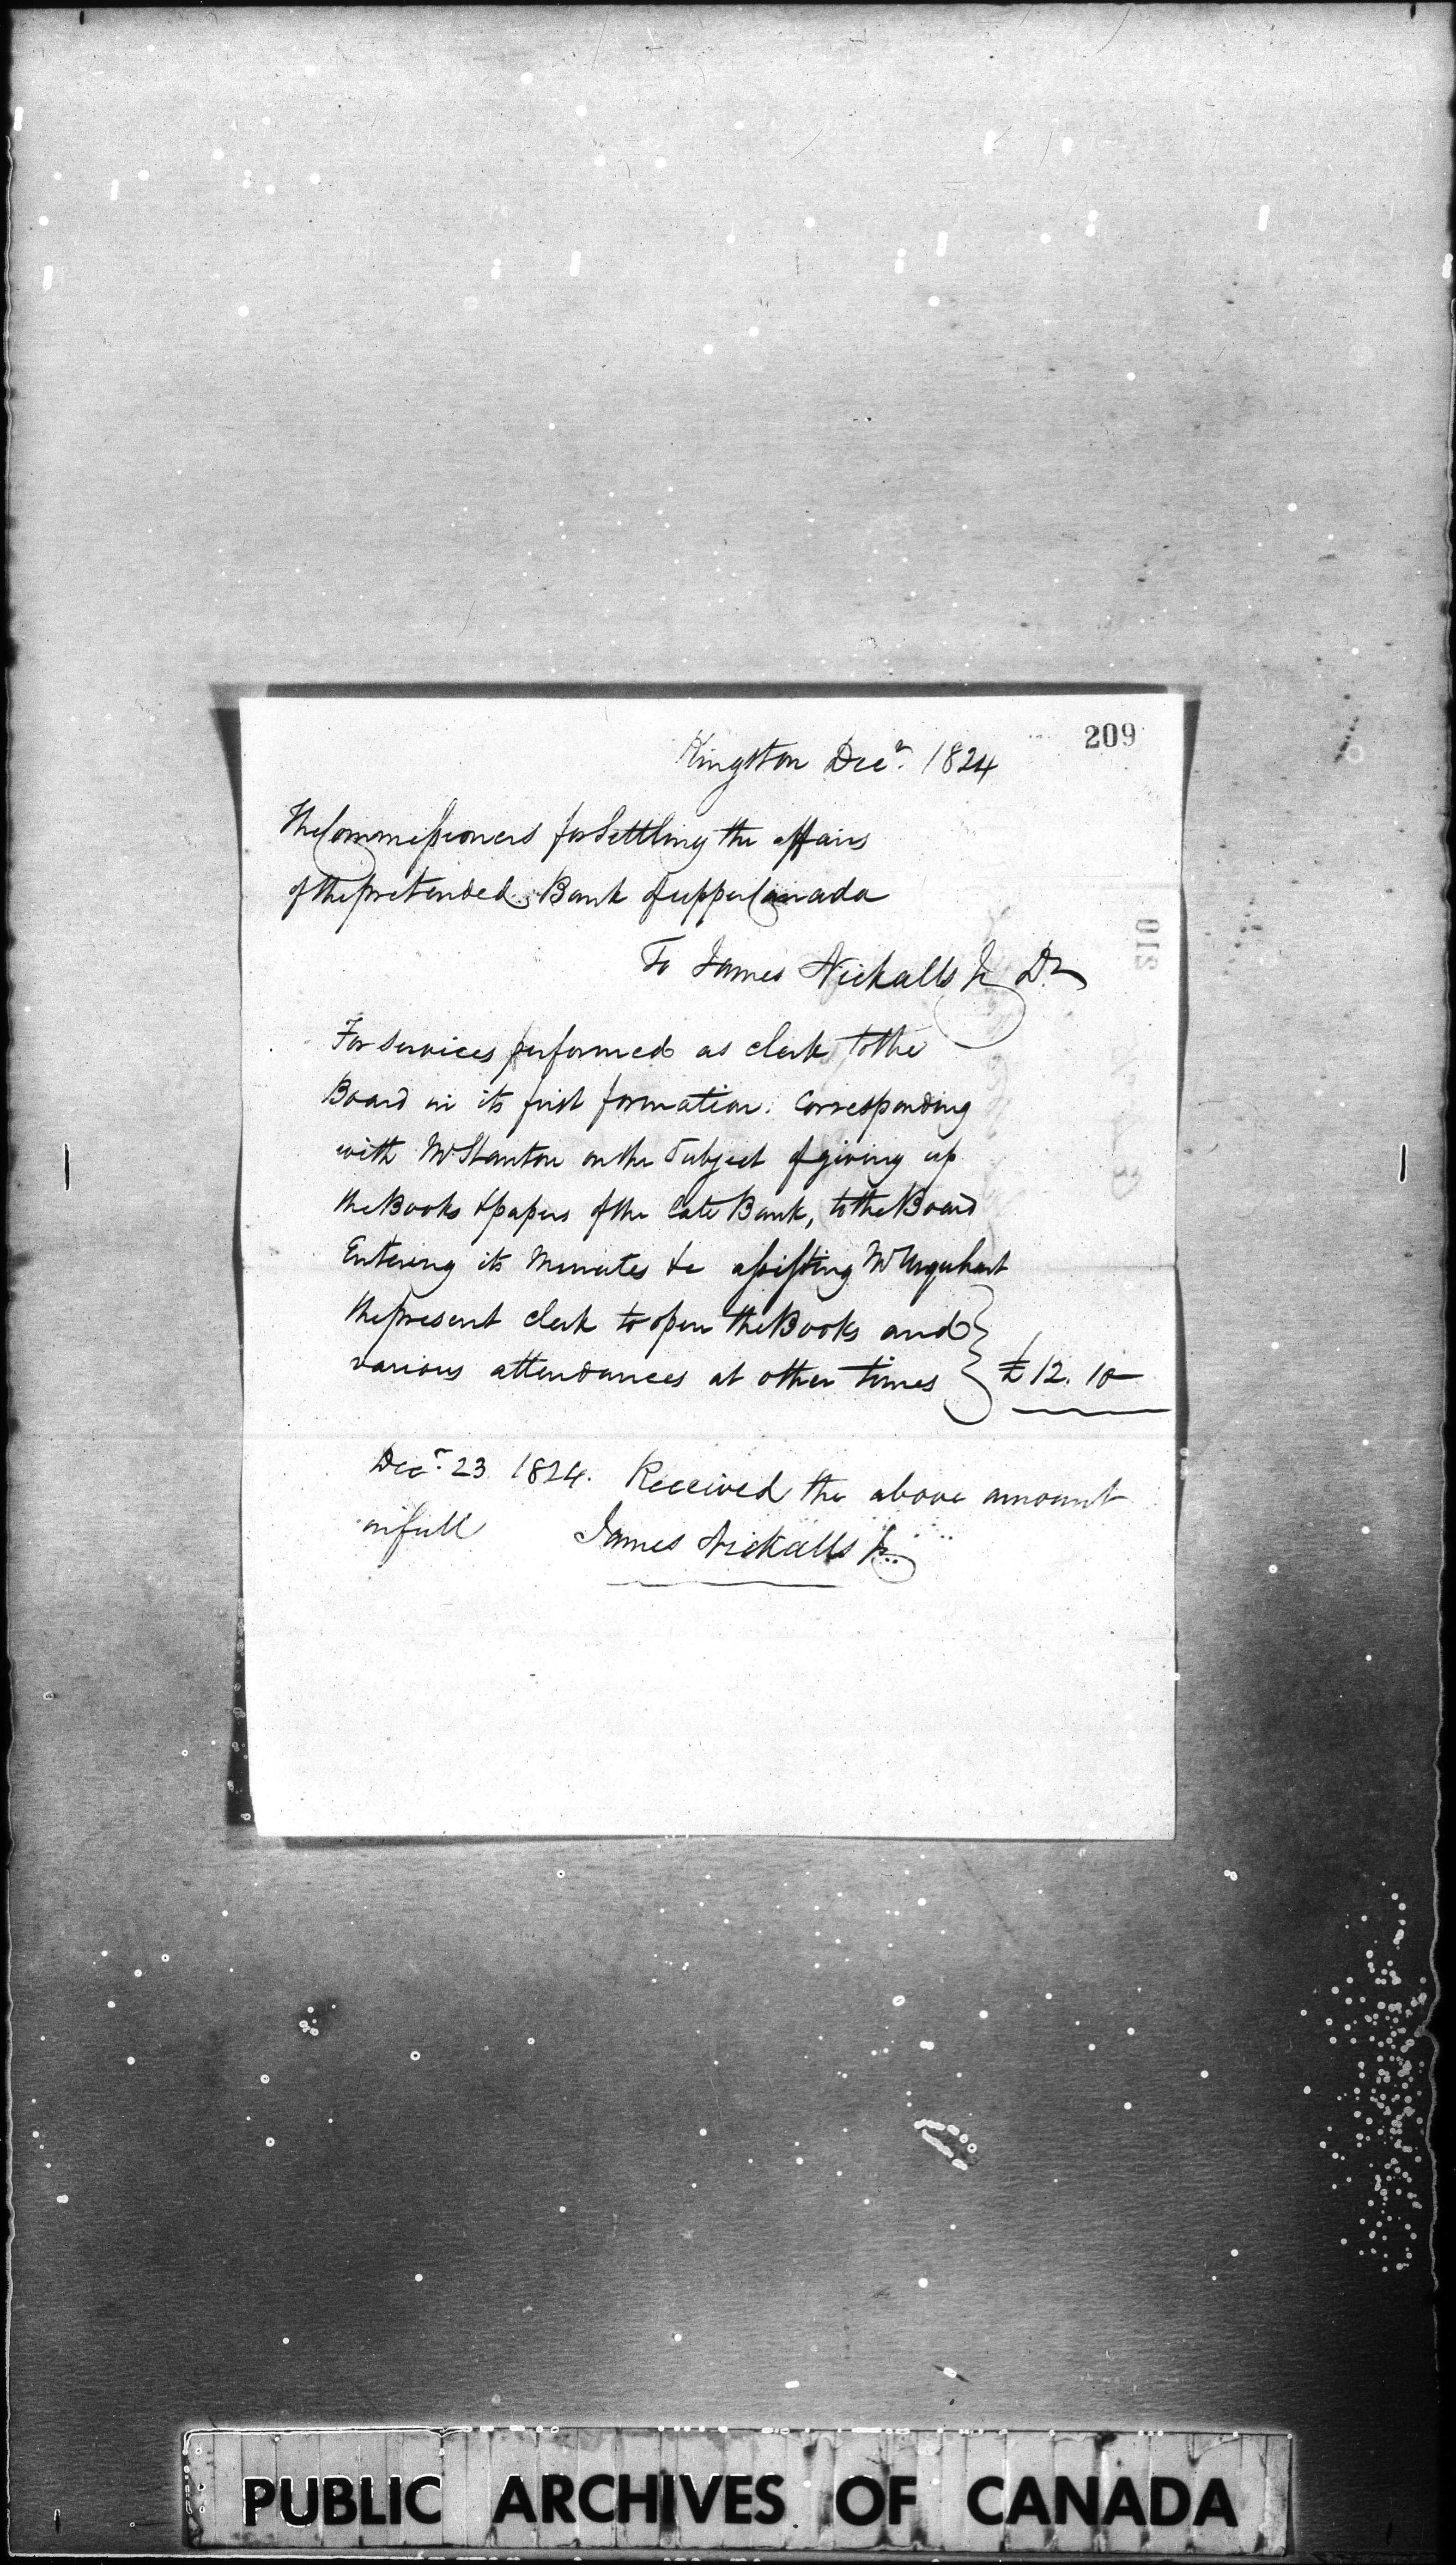 209
Kingston Decr. 1824
The Commissioners for Settling the affairs
of the pretended Bank of upper Canada
To James Nickalls Jr Dr
For Services performed as clerk to the
Board in its first formation. Corresponding
with Mr Stanton on the Subject of giving up
the Books & papers of the late Bank, to the Board
Entering its Minutes &c assisting Mr Urquhart
the present clerk to open the Books and
various attendances at other times } £12.10
Decr. 23 1824. Received the above amount
in full James Nickalls Jr.
PUBLIC ARCHIVES OF CANADA